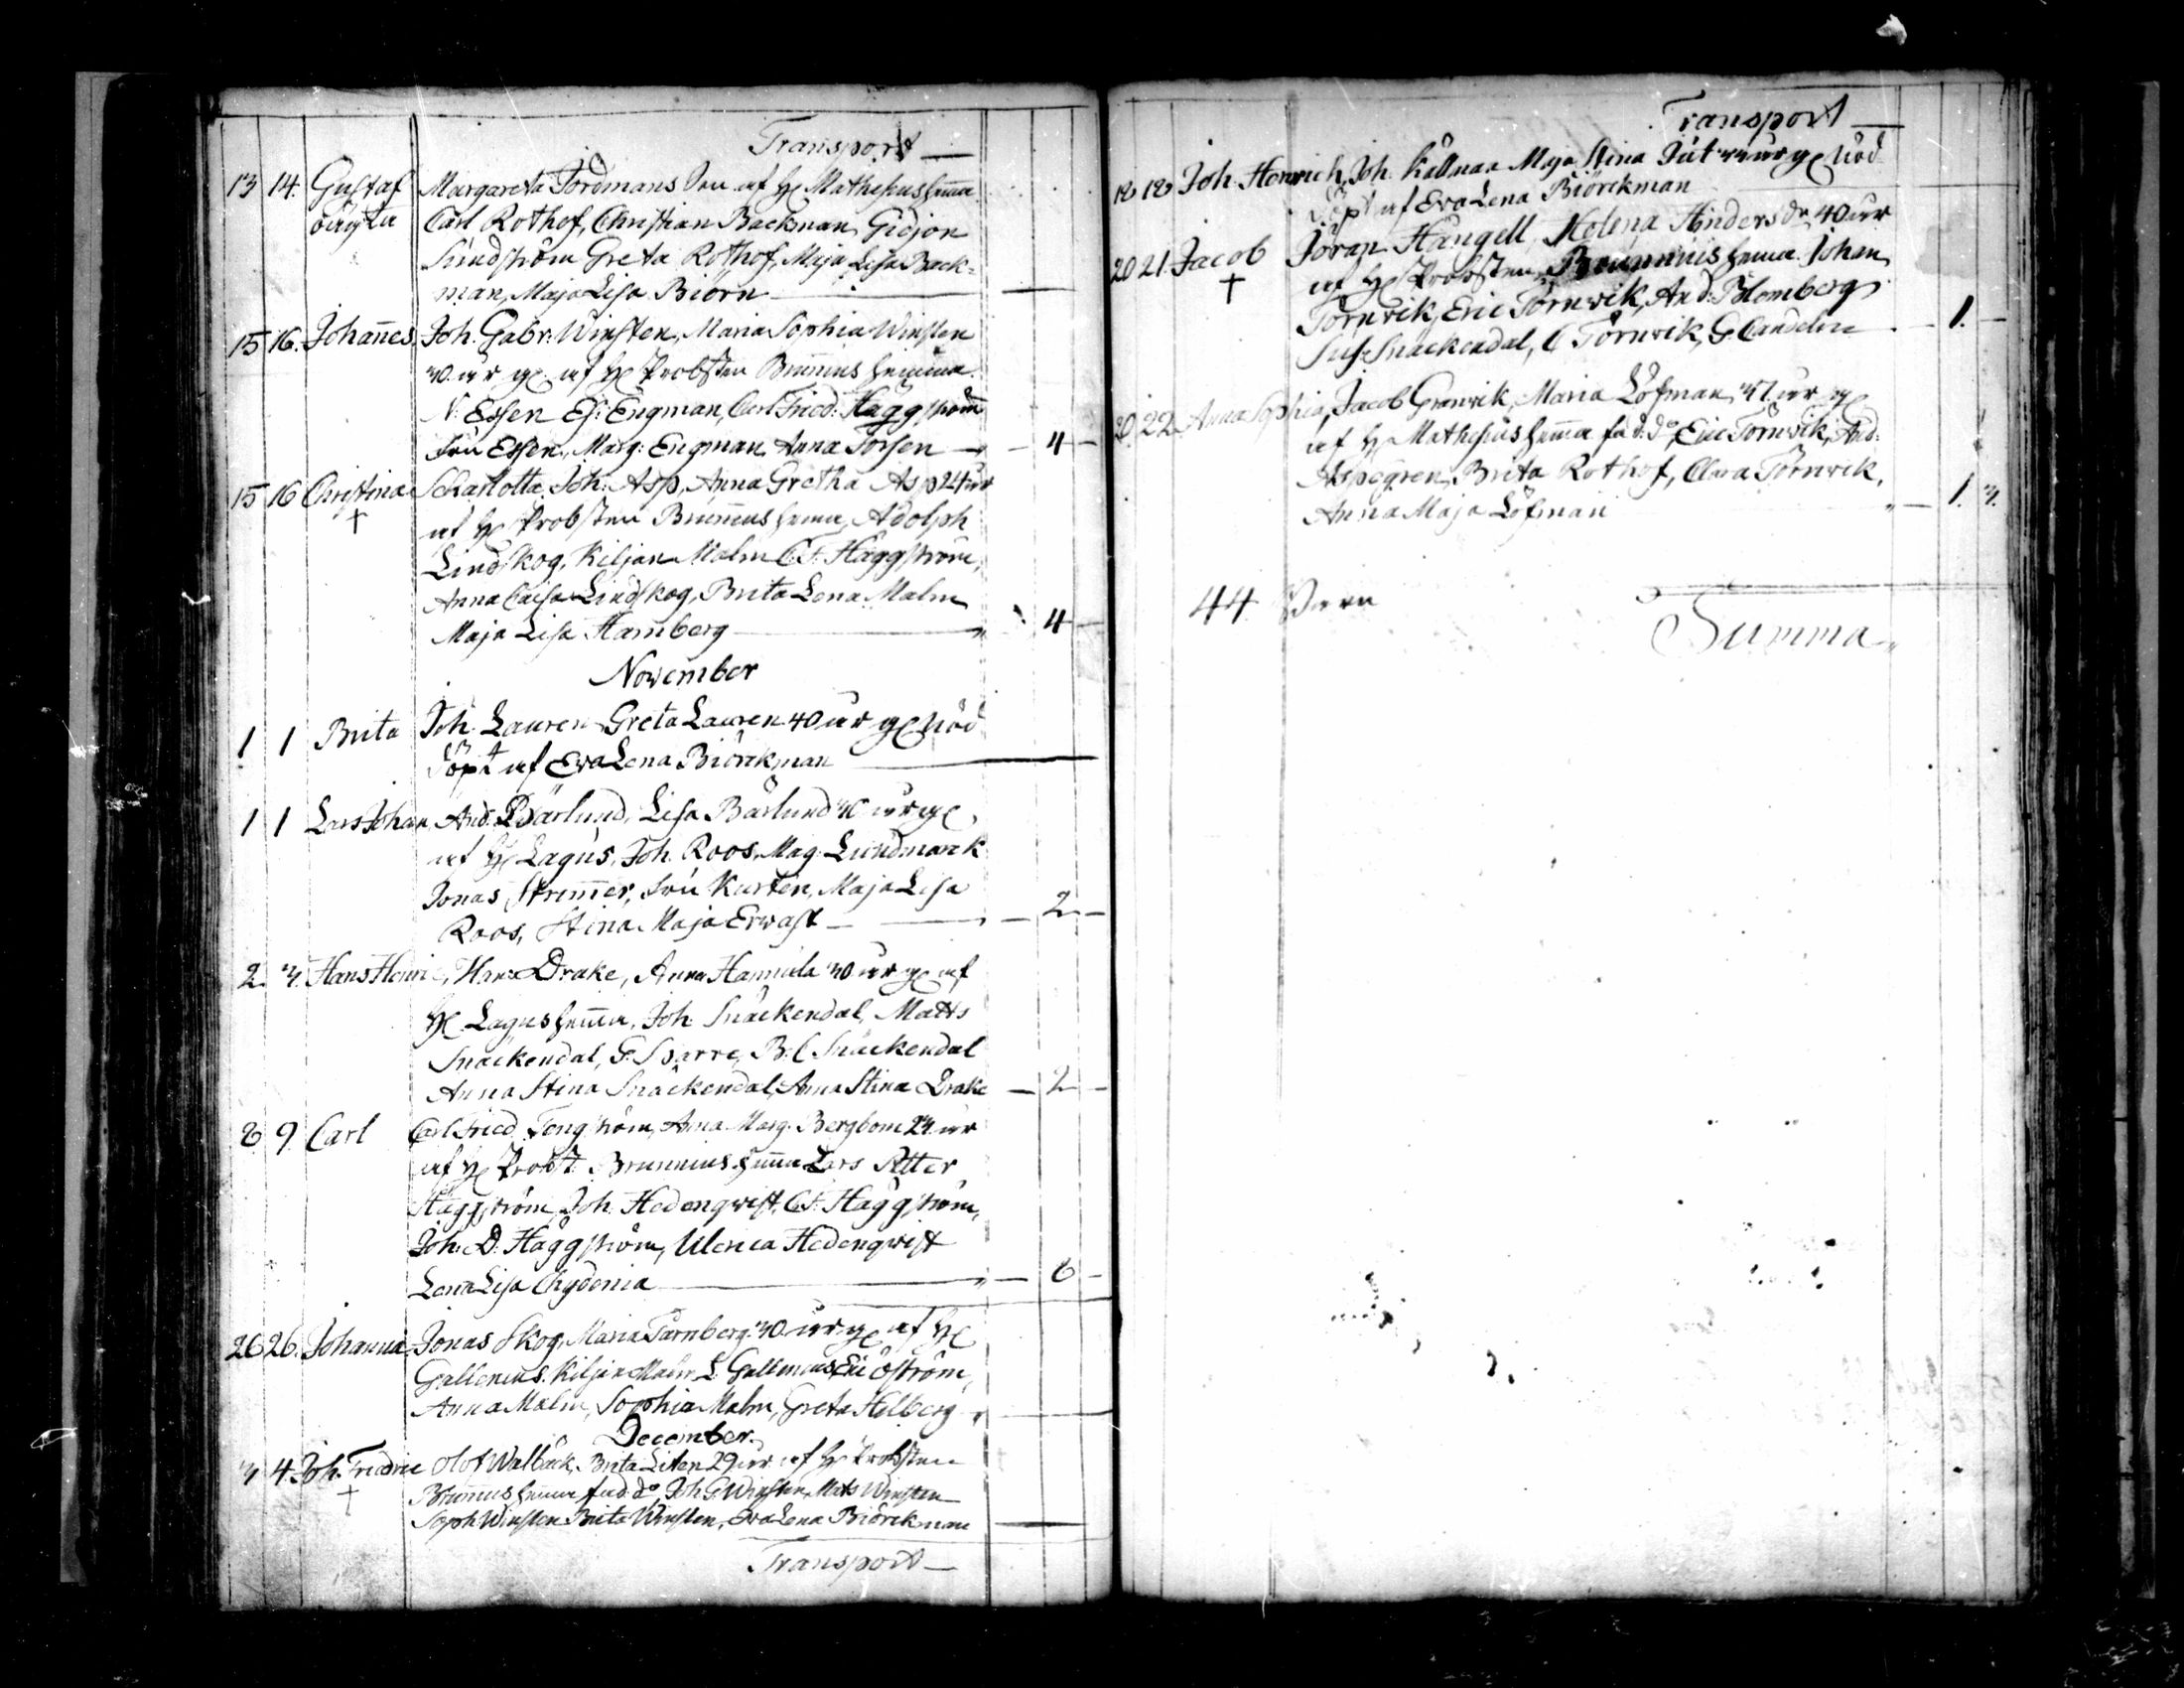 Transport
13 14. Gustaf Margareta Tordmans Son af H Mathesius hemma
oägta Carl Rothof, Christian Backman, Gidjon
Sundström Greta Rothof, Maja Lisa Back=
man, Maja Lisa Biörn
15 16. Johanes. Joh. Gabr: Winsten, Maria Sophia Winsten
30 år g af H Probsten Brunnius hemma.
N: Essen E: Engman, Carl Fried: Häggström
Fru Essen, Marg: Engman, Anna Forsen 4
15 16 Christina Scharlotta, Joh: Asp, Anna Gretha Asp 24 år
† af H Probsten Brunnius hemma, Adolph
Lindskog, Kiljan Malm C.F. Häggström,
Anna Caisa Lindskog, Brita Lena Malm
Maja Lisa Hamberg 4
November
1 1 Brita Joh. Lauren Greta Lauren 40 år g Nöd
Döpt af Eva Lena Biörckman
1 1 Lars Johan And. Bärlund, Lisa Bärlund år g
af H Lagus, Joh. Roos, Mag. Lundmarck
Jonas Strömer, Fru Kurten, Maja Lisa
Roos, Stina Maja Erwast 2
2. 3. Hans Henric, Hans Drake, Anna Hannula 30 år g af
H Lagus hemma, Joh. Snäckendal, Matts
Snäckendal, G. Sparre, B.C Snäckendal
Anna Stina Snäckendal, Anna Stina Drake 2
8 9 Carl Carl Fried. Tengström, Anna Marg. Bergbom 24 år
af H Probst: Brunnius hemma Lars Petter
Häggström, Joh. Hedenqvist, C.F. Häggström,
Joh. D. Häggström, Ulerica Hedenqvist
Lena Lisa Chydenia 6
26 26. Johanna Jonas Skog, Maria Tarnberg 30 år g af H
Gallenius. Kiljan Malm L. Gallenius Eric Öström,
Anna Malm, Sophia Malm, Greta Helberg
December.
3 4. Joh. Fredric Olof Walbäck, Brita Liten 29 år af H Probsten
† Brunnius hemma fad. do Joh G Winsten, Mats Winsten
Soph Winsten Brita Winsten, Eva Lena Biörckman
Transport
Transport
18 18 Joh. Henrich, Joh. Källman Maja Stina Jut år g Nöd
Döpt af Eva Lena Biörckman
20 21. Jacob Jöran Hängell, Helena Hinders dr 40 år
† af H Probsten Brunnius hemma. Johan
Törnvik, Eric Törnvik, And: Blomberg
Sus: Snäckendal, C Törnvik, G. Candelin 1.
20. 22 Anna Sophia, Jacob Granvik, Maria Löfman, 37 år g
af H Mathesius hemma fad: do, Eric Törnvik, And:
Aspegren, Brita Rothof, Clara Törnvik,
Anna Maja Löfman 1. 3.
44 Barn
Summa